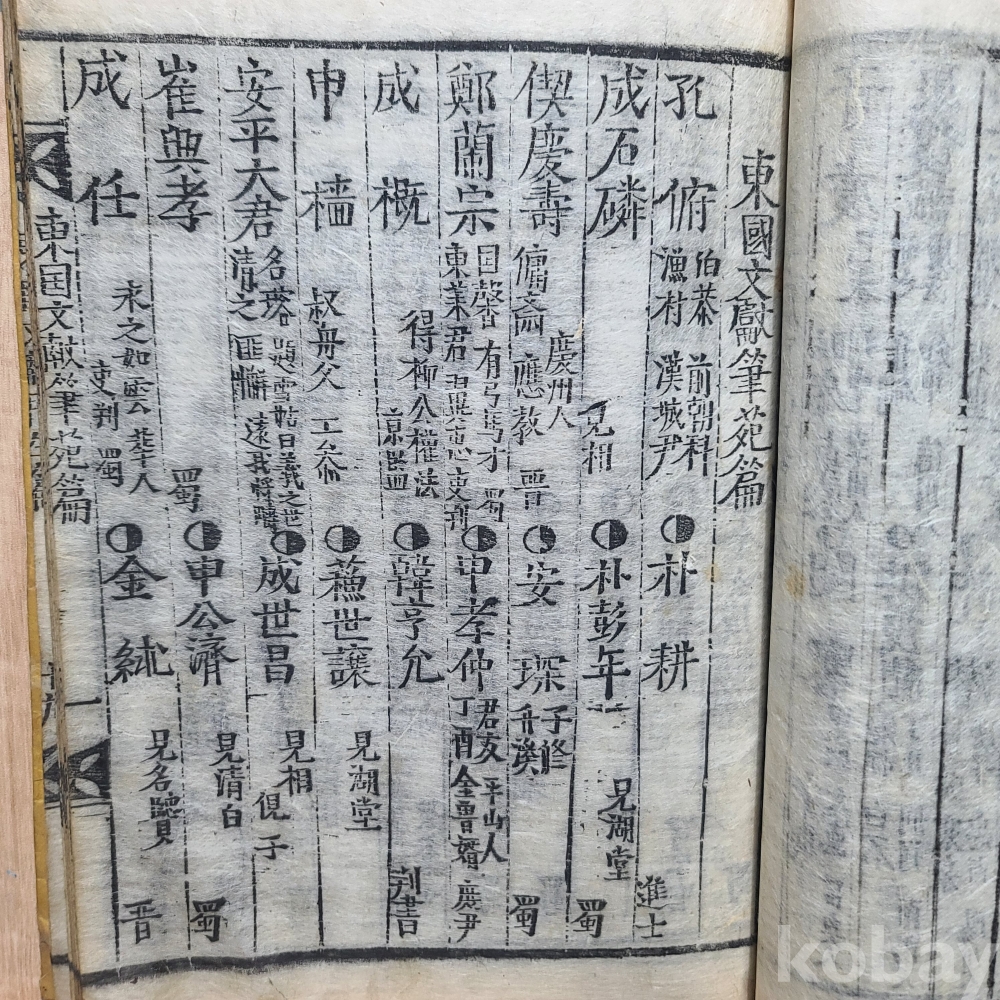 東國文獻筆苑篇
孔俯 伯恭 漁村 前朝科 漢城尹 朴耕 進士
成石磷 見相 朴彭年 見湖堂 蜀
偰慶壽 慶州人 傭齋 應教 晋 安琛 子修 蜀
鄭蘭宗 国馨 東莱君 有弓馬才 吏判 蜀 申孝仲 君友 丁酉 平山人 金魯婿 慶尹
成概 得柳公權法 京監 韓亨允 判書
申檣 叔舟父 工参 蘓世讓 見湖堂
安平大君 名瑢 清之 匪懈 題雪帖曰義之世遠我将 成世昌 見相 俔子
崔興孝 蜀 申公濟 見清白 蜀
成任 末之如雲 韋人 吏判 蜀 金絿 見名賢 晋
東国文献筆苑篇
kobay